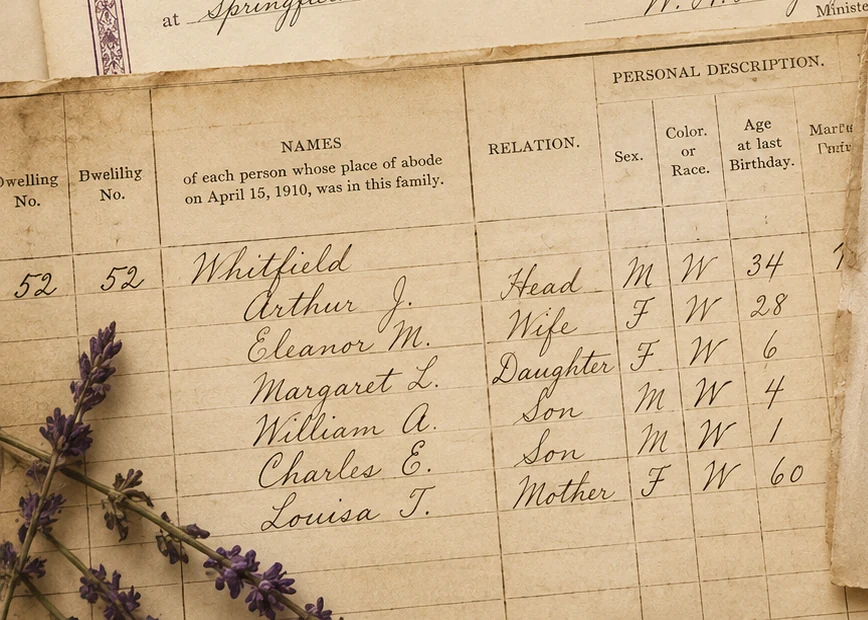 at Springfield
W.
Ministe
PERSONAL DESCRIPTION.
Dwelling No.
Dwelilng No.
NAMES
of each person whose place of abode
on April 15, 1910, was in this family.
RELATION.
Sex.
Color. or Race.
Age at last Birthday.
52 52 Whitfield
Arthur J. Head M W 34
Eleanor M. Wife F W 28
Margaret L. Daughter F W 6
William A. Son M W 4
Charles E. Son M W 1
Louisa T. Mother F W 60